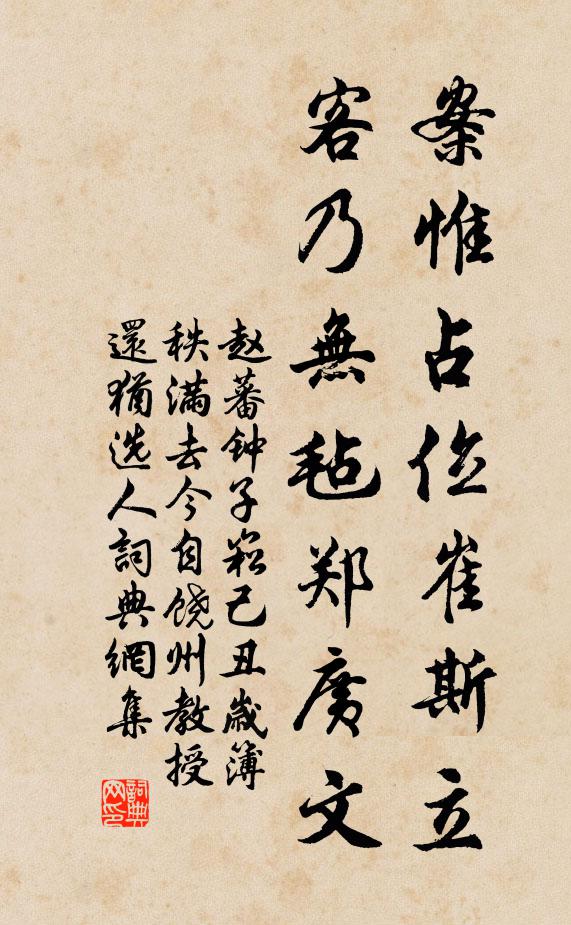 案惟占位崔斯立
客乃無毡郑廣文
赵蕃钟子崧己丑歲簿
秩滿去今自饶州教授
還猶选人詞典網集
詞典
网印